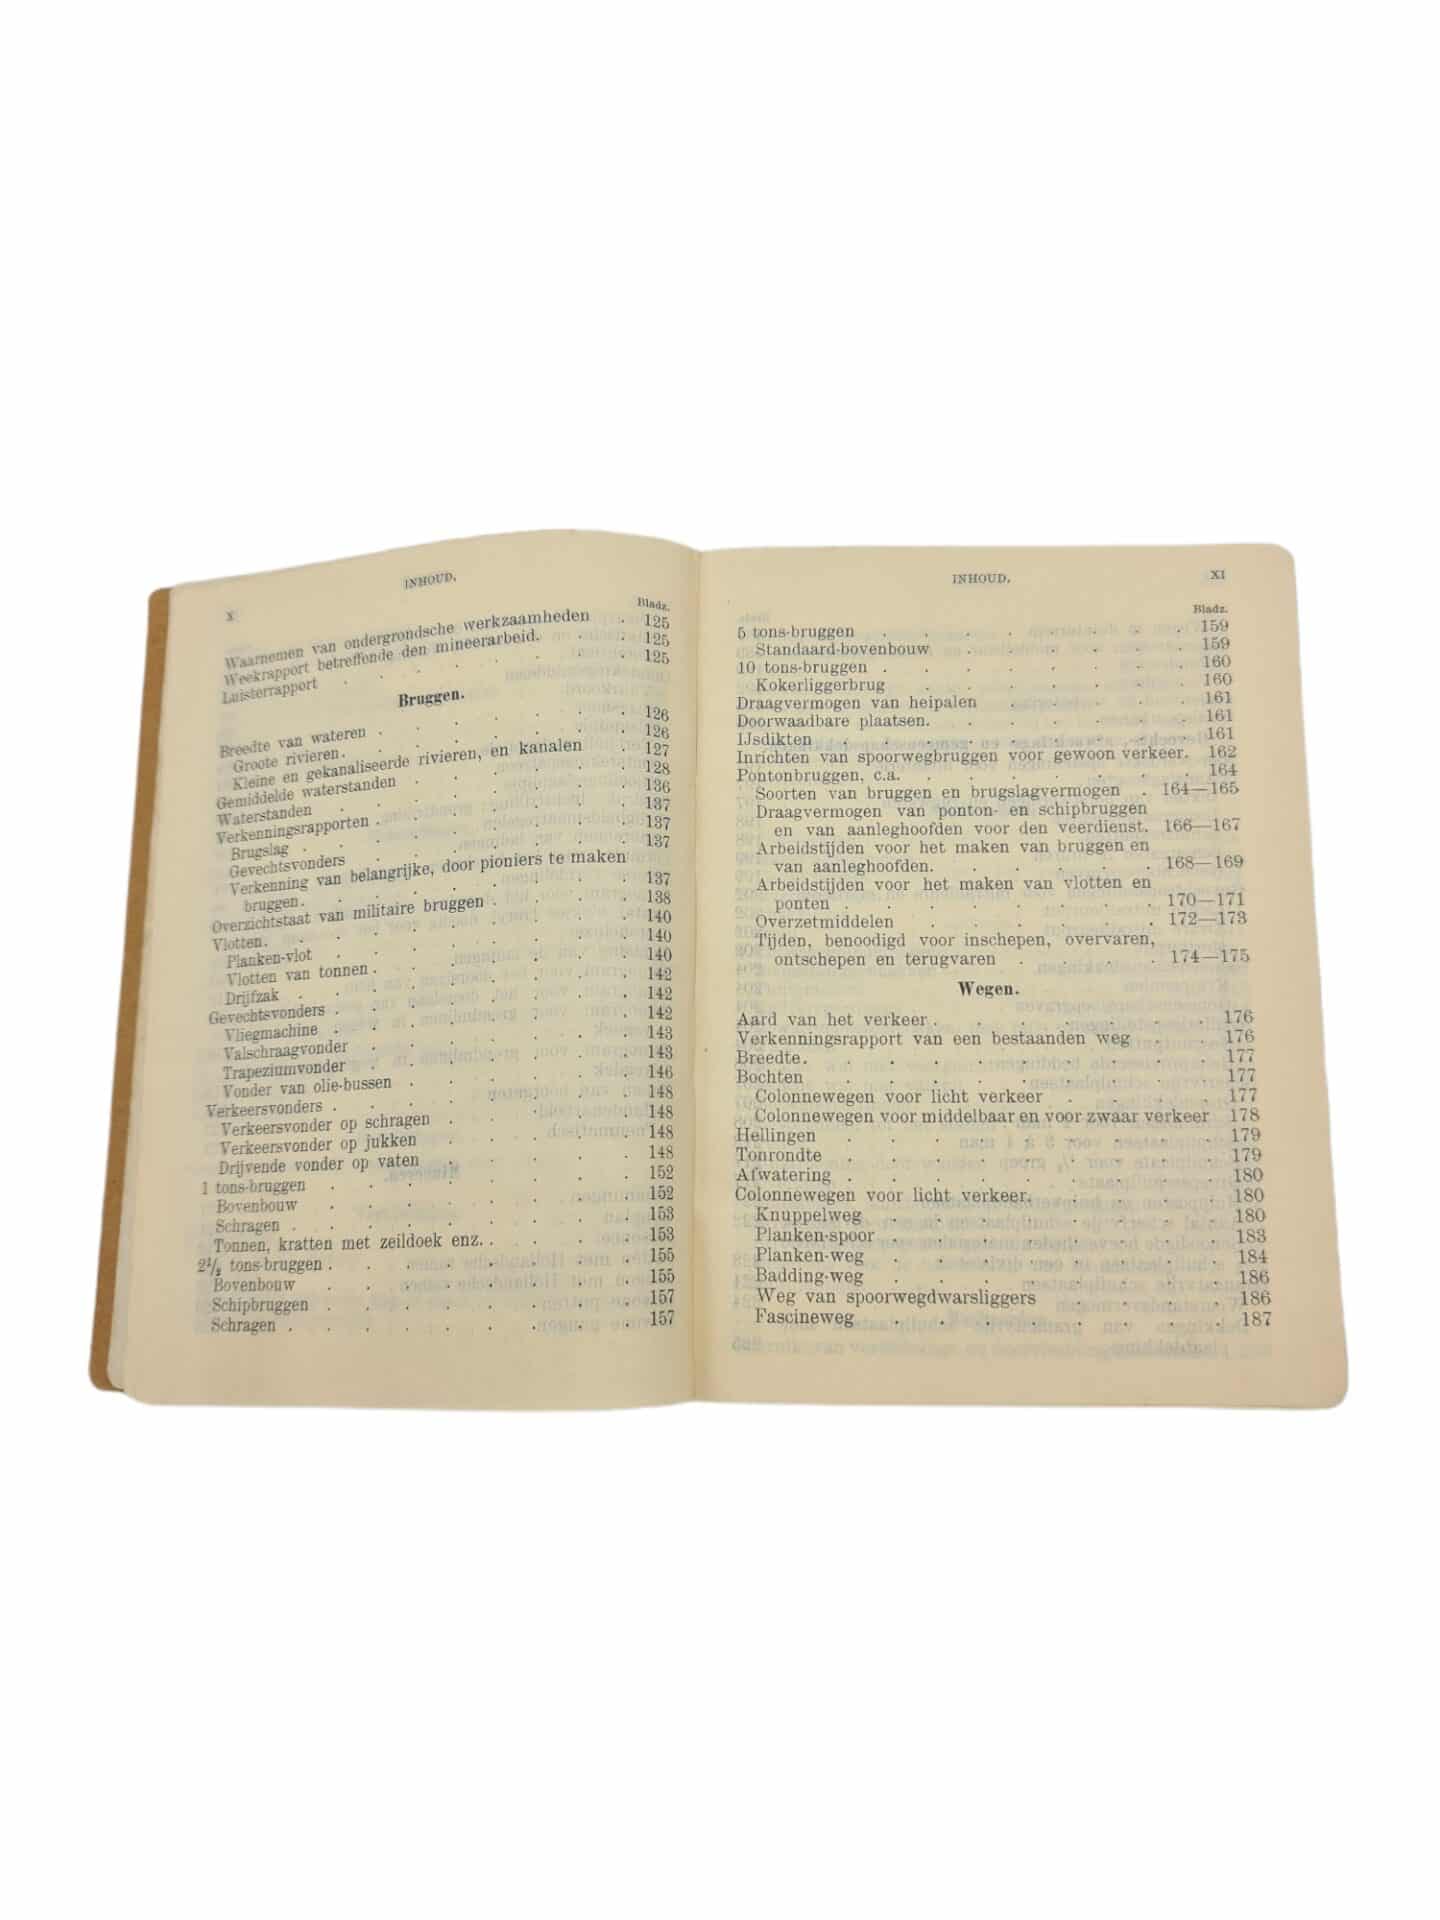 X
INHOUD.
Bladz.
Waarnemen van ondergrondsche werkzaamheden . 125
Weekrapport betreffende den mineerarbeid. . . 125
Luisterrapport . . . . . . . . 125
Bruggen.
Breedte van wateren . . . . . . . 126
Groote rivieren. . . . . . . . 126
Kleine en gekanaliseerde rivieren, en kanalen . 127
Gemiddelde waterstanden . . . . . . 128
Waterstanden . . . . . . . . 136
Verkenningsrapporten . . . . . . . 137
Brugslag . . . . . . . . . 137
Gevechtsvonders . . . . . . . 137
Verkenning van belangrijke, door pioniers te maken
bruggen. . . . . . . . . 137
Overzichtstaat van militaire bruggen . . . . 138
Vlotten. . . . . . . . . . 140
Planken-vlot . . . . . . . . 140
Vlotten van tonnen . . . . . . . 140
Drijfzak . . . . . . . . . 142
Gevechtsvonders . . . . . . . . 142
Vliegmachine . . . . . . . . 142
Valschraagvonder . . . . . . . 143
Trapeziumvonder . . . . . . . 143
Vonder van olie-bussen . . . . . . 146
Verkeersvonders . . . . . . . . 148
Verkeersvonder op schragen . . . . . 148
Verkeersvonder op jukken . . . . . 148
Drijvende vonder op vaten . . . . . 148
1 tons-bruggen . . . . . . . . 152
Bovenbouw . . . . . . . . 152
Schragen . . . . . . . . . 153
Tonnen, kratten met zeildoek enz. . . . . 153
2½ tons-bruggen . . . . . . . . 155
Bovenbouw . . . . . . . . 155
Schipbruggen . . . . . . . . 157
Schragen . . . . . . . . . 157
INHOUD.
XI
Bladz.
5 tons-bruggen . . . . . . . . 159
Standaard-bovenbouw . . . . . . 159
10 tons-bruggen . . . . . . . . 160
Kokerliggerbrug . . . . . . . 160
Draagvermogen van heipalen . . . . . 161
Doorwaadbare plaatsen. . . . . . . 161
IJsdikten . . . . . . . . . 161
Inrichten van spoorwegbruggen voor gewoon verkeer. 162
Pontonbruggen, c.a. . . . . . . . 164
Soorten van bruggen en brugslagvermogen . 164—165
Draagvermogen van ponton- en schipbruggen
en van aanleghoofden voor den veerdienst. 166—167
Arbeidstijden voor het maken van bruggen en
van aanleghoofden. . . . . . 168—169
Arbeidstijden voor het maken van vlotten en
ponten . . . . . . . . 170—171
Overzetmiddelen . . . . . . 172—173
Tijden, benoodigd voor inschepen, overvaren,
ontschepen en terugvaren . . . . 174—175
Wegen.
Aard van het verkeer . . . . . . . 176
Verkenningsrapport van een bestaanden weg . . 176
Breedte. . . . . . . . . . 177
Bochten . . . . . . . . . 177
Colonnewegen voor licht verkeer . . . . 177
Colonnewegen voor middelbaar en voor zwaar verkeer 178
Hellingen . . . . . . . . . 179
Tonrondte . . . . . . . . . 179
Afwatering . . . . . . . . . 180
Colonnewegen voor licht verkeer. . . . . 180
Knuppelweg . . . . . . . . 180
Planken-spoor . . . . . . . . 183
Planken-weg . . . . . . . . 184
Badding-weg . . . . . . . . 186
Weg van spoorwegdwarsliggers . . . . 186
Fascineweg . . . . . . . . 187